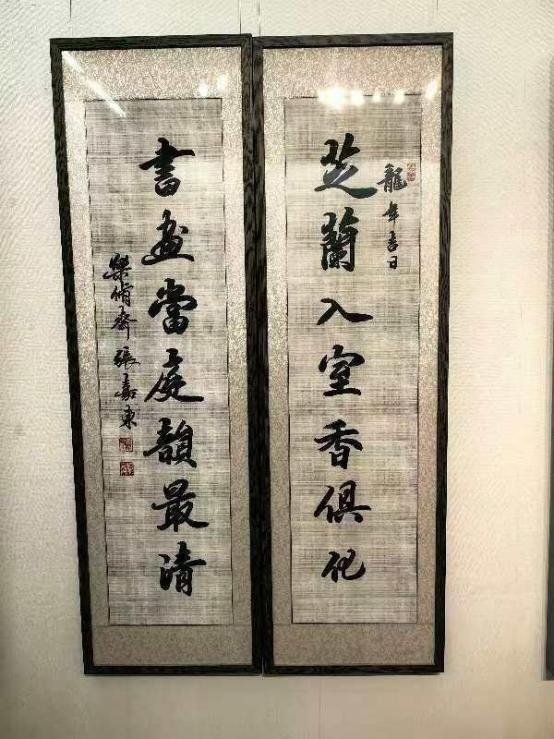 芝蘭入室香俱化
龍年吉日
書畫當庭韻最清
樂脩齋張嘉東